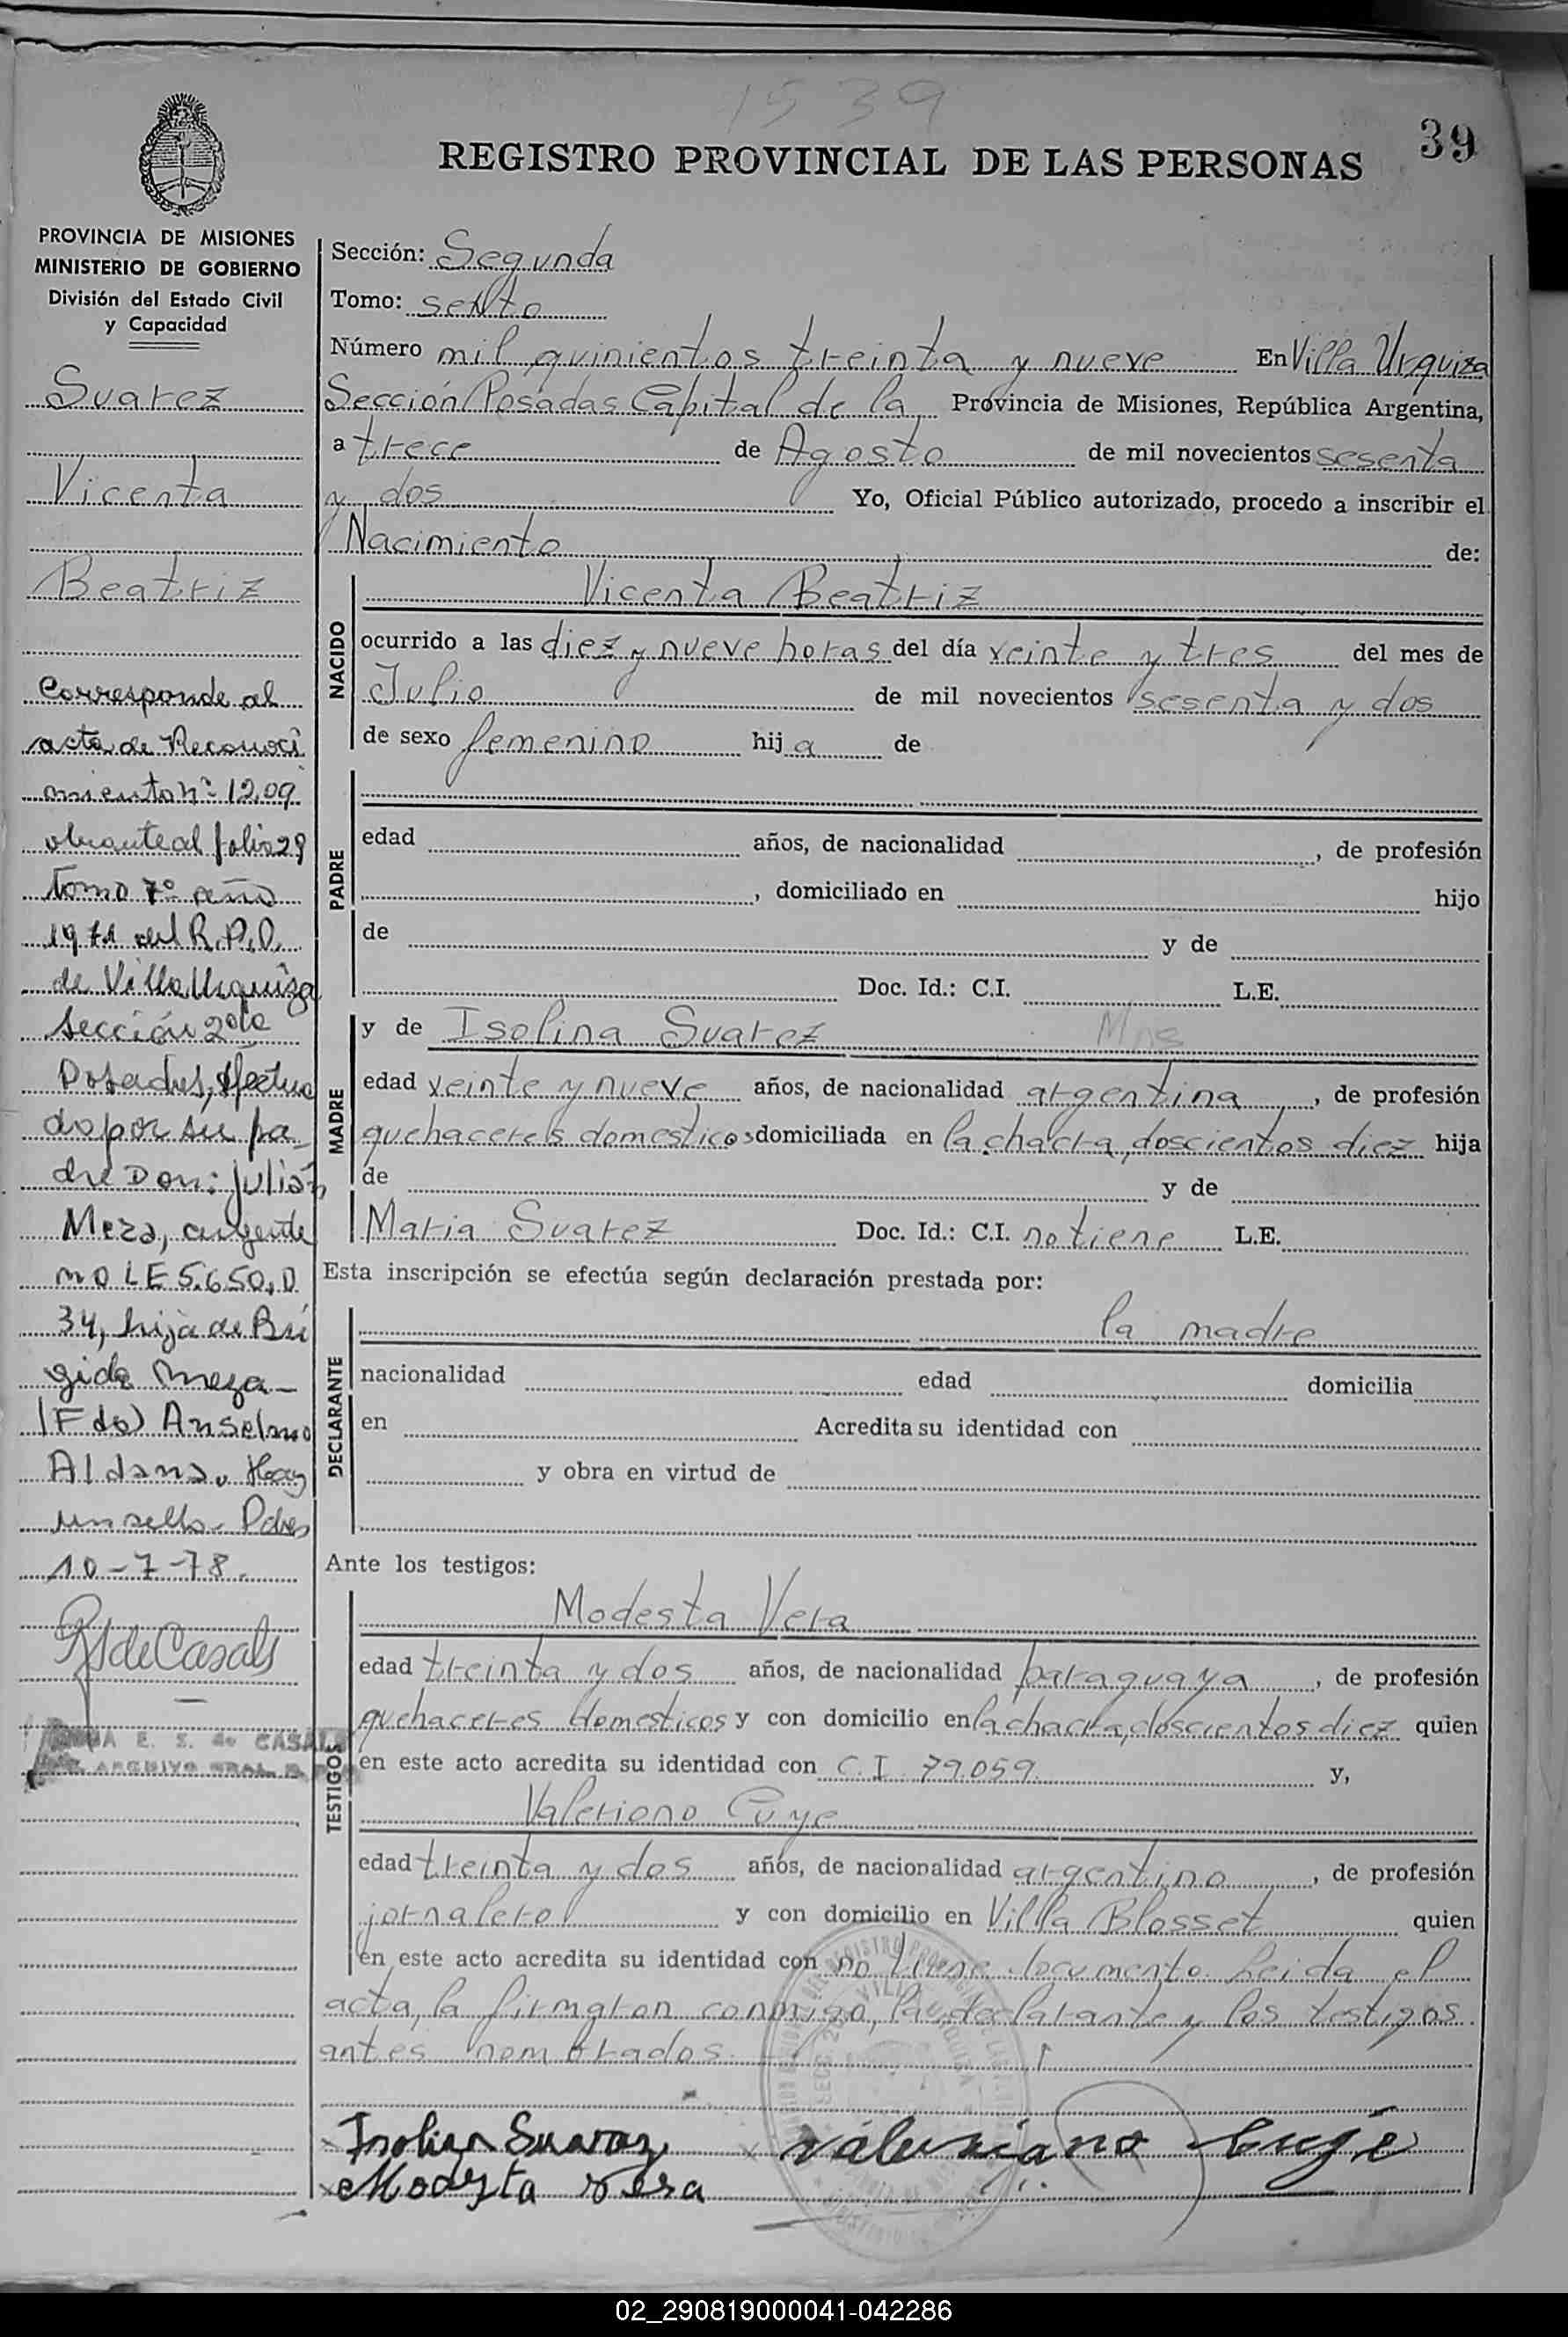 1539
39
REGISTRO PROVINCIAL DE LAS PERSONAS
PROVINCIA DE MISIONES
MINISTERIO DE GOBIERNO
División del Estado Civil
y Capacidad
Suarez
Vicenta
Beatriz
Corresponde al
acta de Reconoci
miento Nº 1209
obrante al folio 29
Tomo 7º año
1971 del R.P.D.
de Villa Urquiza
Sección 2da
Posadas, efectua
do por su pa
dre Don: Julián
Meza, argenti
no LE 5.650.0
34, hijo de Bri
gida Meza-
(Fdo) Anselmo
Aldana. Hay
un sello- Pdas
10-7-78.
de Casals
E. S. de CASALS
ARCHIVO GRAL.
Sección: Segunda
Tomo: sexto
Número mil quinientos treinta y nueve En Villa Urquiza
Sección Posadas Capital de la Provincia de Misiones, República Argentina,
a trece de Agosto de mil novecientos sesenta
y dos Yo, Oficial Público autorizado, procedo a inscribir el
Nacimiento de:
NACIDO
Vicenta Beatriz
ocurrido a las diez y nueve horas del día veinte y tres del mes de
Julio de mil novecientos sesenta y dos
de sexo femenino hija de
PADRE
edad años, de nacionalidad , de profesión
, domiciliado en hijo
de y de
Doc. Id.: C.I. L.E.
MADRE
y de Isolina Suarez Mns
edad veinte y nueve años, de nacionalidad argentina, de profesión
quehaceres domesticos domiciliada en la chacra, doscientos diez hija
de y de
Maria Suarez Doc. Id.: C.I. no tiene L.E.
Esta inscripción se efectúa según declaración prestada por:
DECLARANTE
la madre
nacionalidad edad domicilia
en Acredita su identidad con
y obra en virtud de
Ante los testigos:
TESTIGOS
Modesta Vera
edad treinta y dos años, de nacionalidad paraguaya, de profesión
quehaceres domesticos y con domicilio en la chacra, doscientos diez quien
en este acto acredita su identidad con C.I. 79.059 y,
Valeriano Cuye
edad treinta y dos años, de nacionalidad argentino, de profesión
jornalero y con domicilio en Villa Blosset quien
en este acto acredita su identidad con no tiene documento. Leida el
acta, la firmaron conmigo, la declarante y los testigos
antes nombrados.
Isolina Suarez Valeriano Cuye
Modesta Vera
02_290819000041-042286